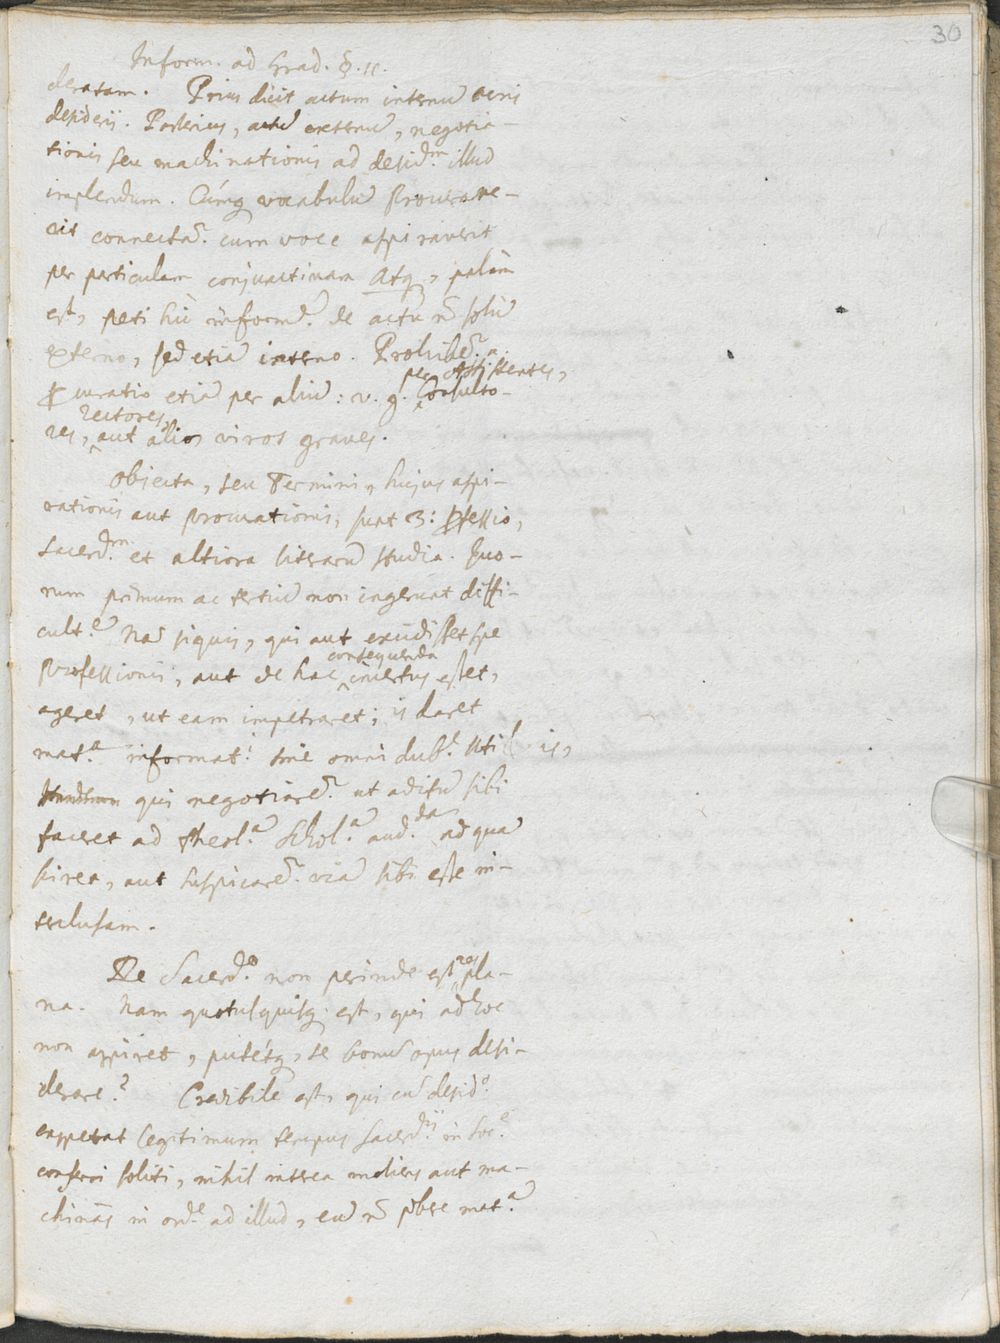 30
Inform. ad Grad. §. 11.
deratam. Prius dicit actum internũ veri
desiderii. Posterius, actũ externũ, negotia-
tionis seu machinationis ad desid.m illud
implendum. Cúmq vocabulũ Procurave-
rit connectar̃. cum voce aspiraverit
per particulam conjunctivam Atq, palàm
est, peti hìc inform.ẽ de actu ñ solũ
externo, sed etiã interno. Prohibet.r a.
Procuratio etiã per aliũ: v. g. Consulto-
per Assistentes,
res, aut alios viros graves.
rectores,
Objecta, seu Termini, hujus aspi-
rationis aut procurationis, sunt 3: Professio,
Sacerd.m et altiora literarũ studia. Quo-
rum primum ac tertiũ non ingerunt diffi-
cult.ẽ Nã siquis, qui aut excidisset spe
professionis, aut de hac incertus esset,
consequenda
ageret, ut eam impetraret; is daret
mat.ã informat.i sine omni dub.o Uti is,
qui negotiarer̃. ut aditũ sibi
faceret ad theol.ã Schol.ã aud.dã ad quã
sciret, aut suspicarer̃. viã sibi esse in-
terclusam.
De Sacerd.o non perinde est res pla-
na. Nam quotusquisq est, qui ad hoc
non aspiret, putétq, se bonũ opus desi-
derare? Credibile est, qui cũ desid.o
expectat legitimum tempus Sacerd.ii in Soc.e
conferri soliti, nihil interea moliens aut ma-
chinãs in ord.e ad illud, eũ ñ p̃bere mat.ã